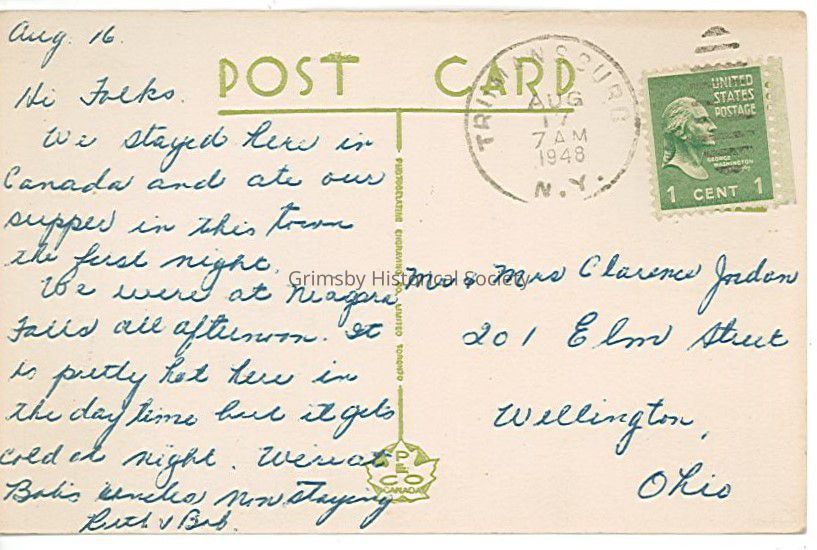 Aug. 16.
Hi Folks.
We stayed here in
Canada and ate our
supper in this town
the first night.
We were at Niagara
Falls all afternoon. It
is pretty hot here in
the day time but it gets
cold at night. We're at
Bob's uncles now staying
Ruth & Bob.
POST CARD
PHOTOGELATINE ENGRAVING CO. LIMITED TORONTO
PECO
CANADA
TRUMANSBURG
AUG
17
7 AM
1948
N.Y.
UNITED
STATES
POSTAGE
GEORGE
WASHINGTON
1 CENT 1
Mr & Mrs Clarence Jordan
201 Elm Street
Wellington,
Ohio
Grimsby Historical Society